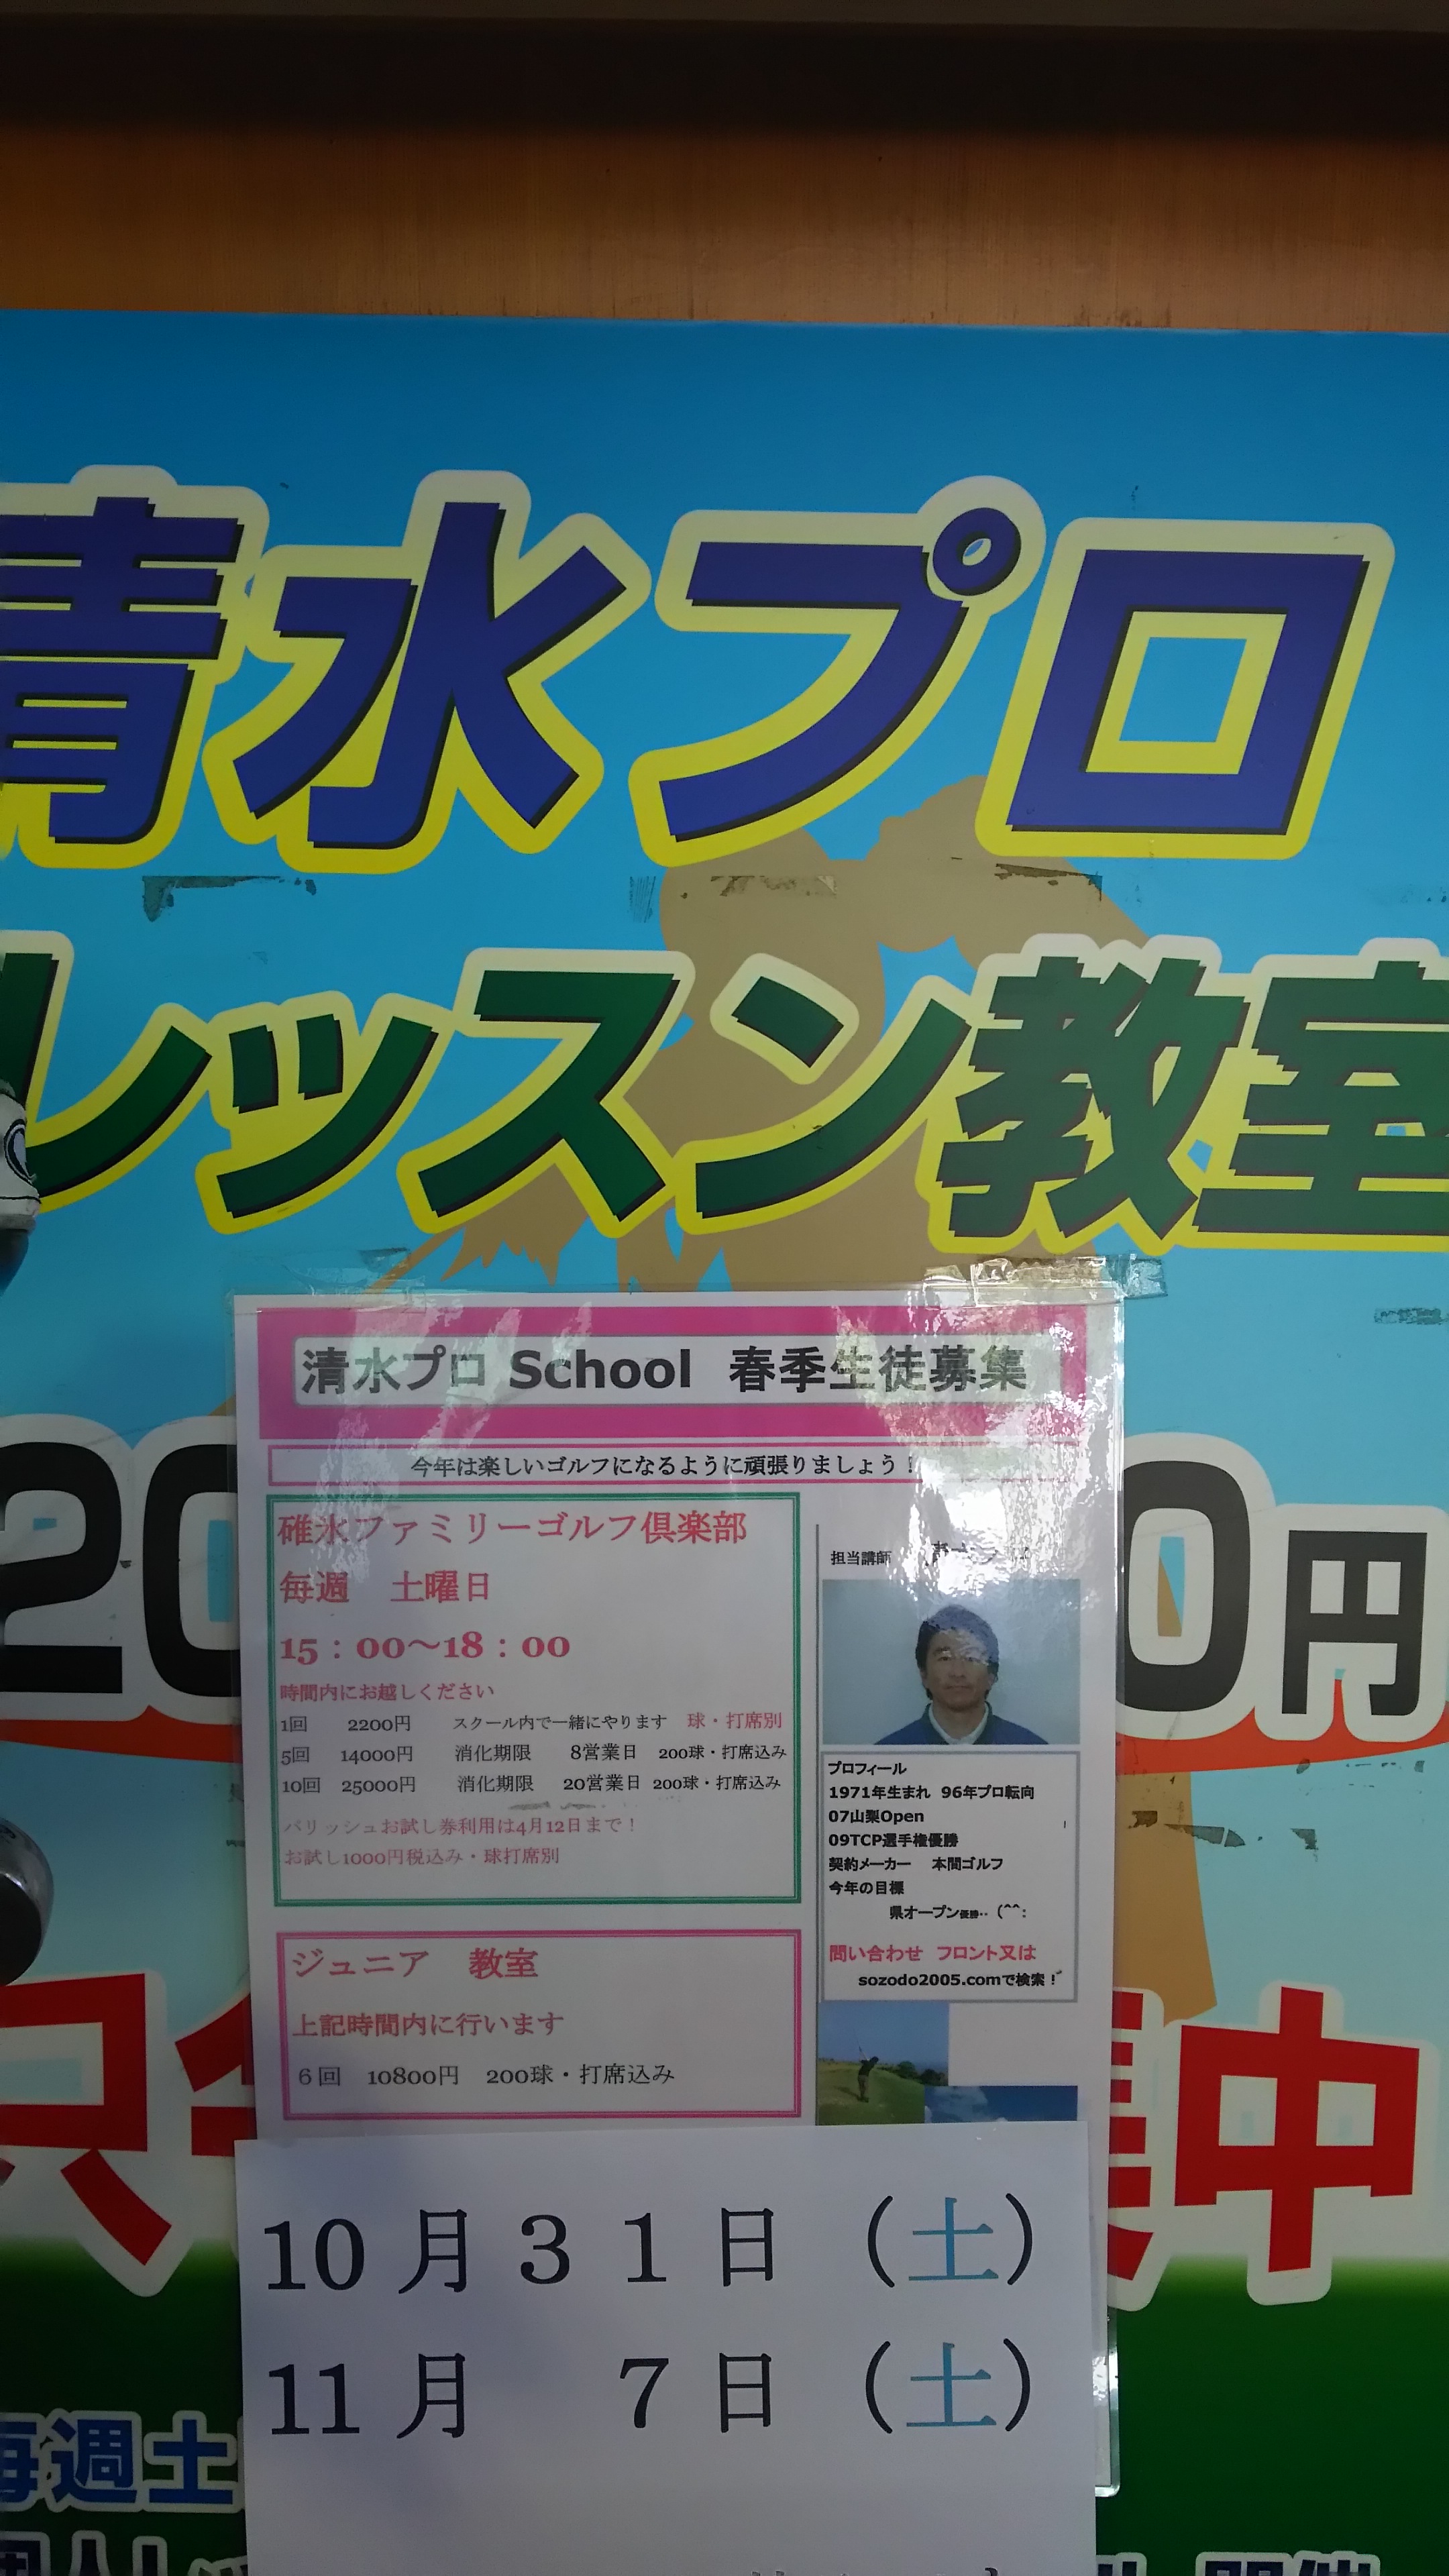 清水プロ
レッスン教室
清水プロ School 春季生徒募集
今年は楽しいゴルフになるように頑張りましょう！
碓氷ファミリーゴルフ倶楽部
毎週 土曜日
15：00～18：00
時間内にお越しください
1回 2200円 スクール内で一緒にやります 球・打席別
5回 14000円 消化期限 8営業日 200球・打席込み
10回 25000円 消化期限 20営業日 200球・打席込み
パリッシュお試し券利用は4月12日まで！
お試し1000円税込み・球打席別
担当講師
プロフィール
1971年生まれ 96年プロ転向
07山梨Open
09TCP選手権優勝
契約メーカー 本間ゴルフ
今年の目標
県オープン優勝‥（^^：
問い合わせ フロント又は
sozodo2005.comで検索！
ジュニア 教室
上記時間内に行います
6回 10800円 200球・打席込み
20
0円
中
10月31日（土）
11月 7日（土）
毎週土